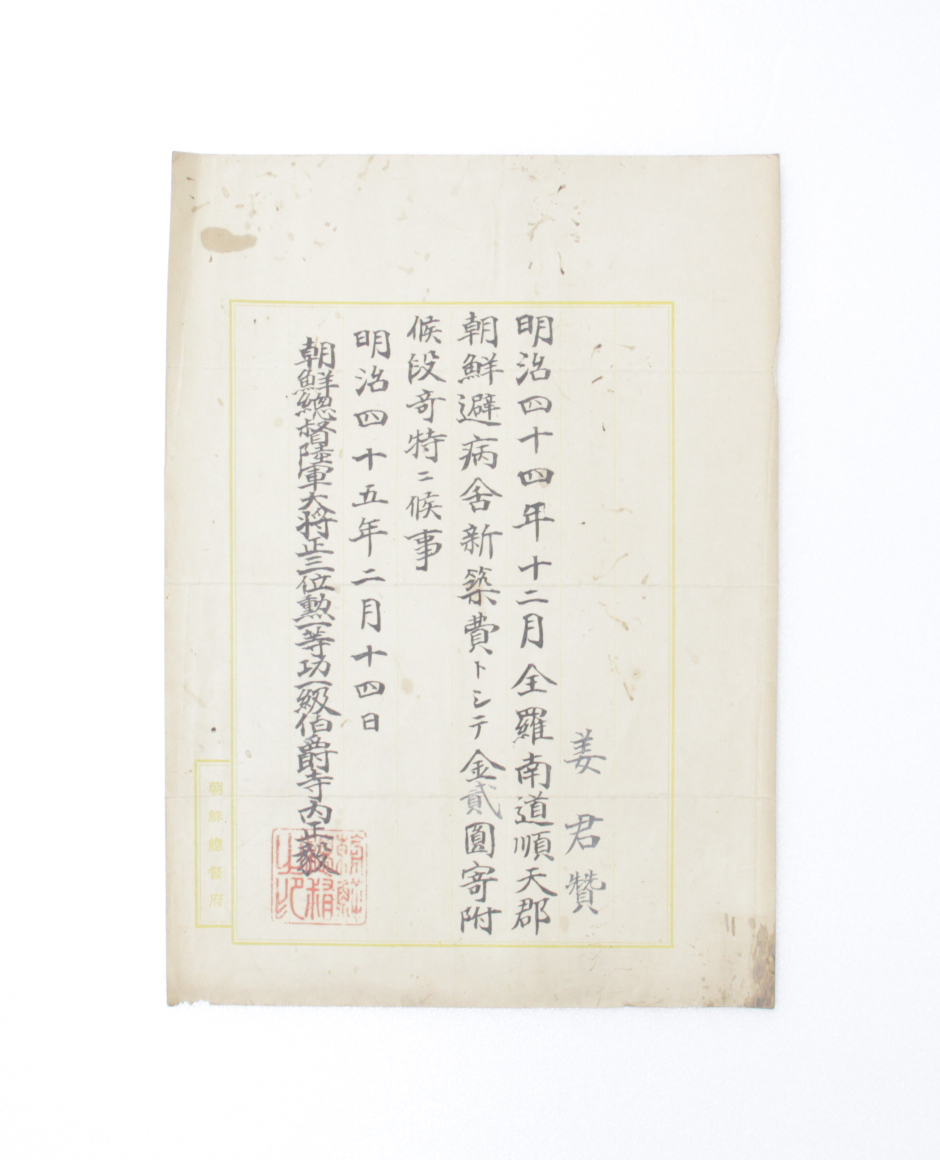 姜君贊
明治四十四年十二月全羅南道順天郡
朝鮮避病舍新築費トシテ金貳圓寄附
候段奇特ニ候事
明治四十五年二月十四日
朝鮮總督陸軍大将正三位勲一等功一級伯爵寺内正毅
朝鮮總督之印
朝鮮總督府